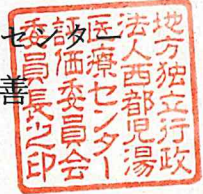 センター
善
地方独立行政
法人西都児湯
医療センター
評価委員会
委員長之印